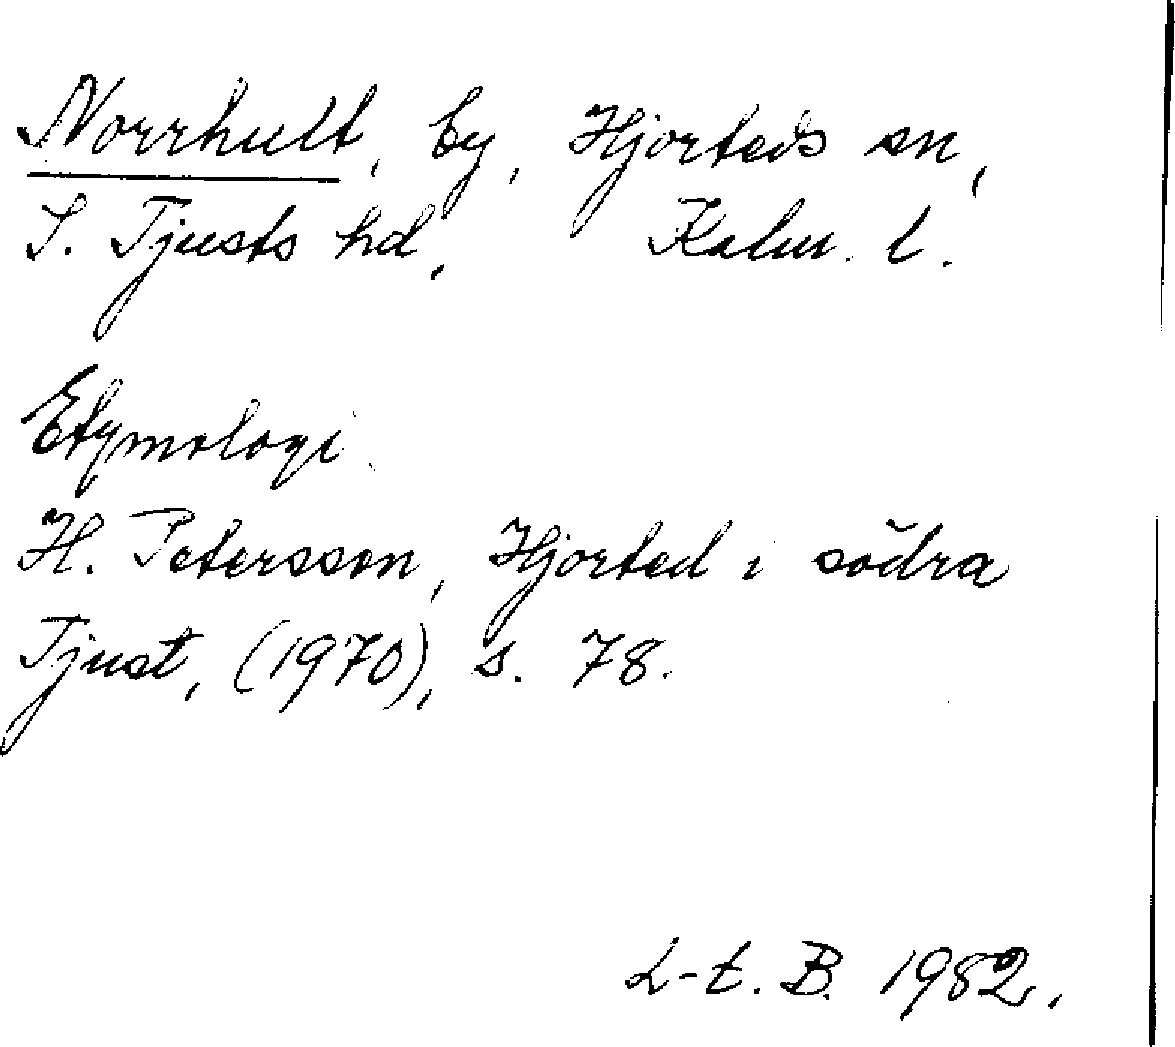 Norrhult, by, Hjorteds sn,
S. Tjusts hd, Kalm. l.
Etymologi.
H. Petersson, Hjorted i södra
Tjust, (1970), s. 78.
L-t. B. 1982.